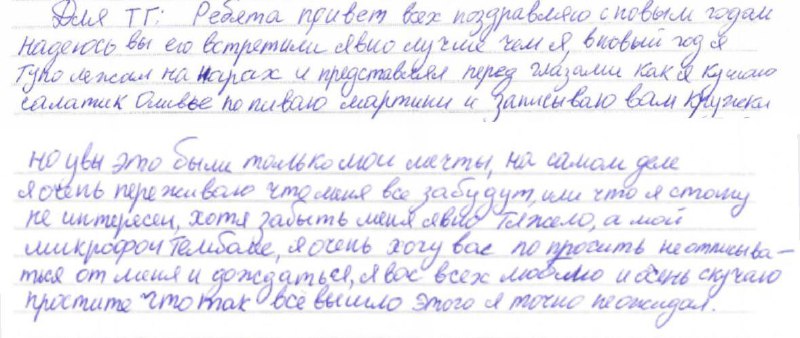 Для ТГ: Ребята привет всех поздравляю с новым годам
надеюсь вы его встретили явно лучше чем я, в новый год я
тупо лежал на нарах и представлял перед глазами как я кушаю
салатик Оливье попиваю мартини и записываю вам кружки
но увы это были только мои мечты, на самом деле
я очень переживаю что меня все забудут, или что я стану
не интересен, хотя забыть меня явно тяжело, а мой
микрофон тембале, я очень хочу вас по просить не отписыва-
ться от меня и дождаться, я вас всех люблю и очень скучаю
простите что так всё вышло этого я точно не ожидал.